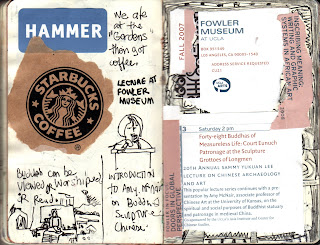 HAMMER
We ate
at the
"Gardens"
then got
coffee.
STARBUCKS
COFFEE
LECTURE AT
FOWLER
MUSEUM
Buddhas can be
VIEWED or Worshiped
OR Read
INTRODUCTION
to Amy
on Buddhist
Sculpture
Chinese
FALL 2007
FOWLER
MUSEUM
AT UCLA
BOX 951549
LOS ANGELES, CA 90095-1549
ADDRESS SERVICE REQUESTED
INSCRIBING MEANING:
WRITING AND GRAPHIC
SYSTEMS IN AFRICAN ART
Saturday 2 pm
Forty-eight Buddhas of
Measureless Life: Court Eunuch
Patronage at the Sculpture
Grottoes of Longmen
20TH ANNUAL SAMMY YUKUAN LEE
LECTURE ON CHINESE ARCHAEOLOGY
AND ART
This popular lecture series continues with a pre-
sentation by Amy McNair, associate professor of
Chinese Art at the University of Kansas, on the
spiritual and social purposes of Buddhist statuary
and patronage in medieval China.